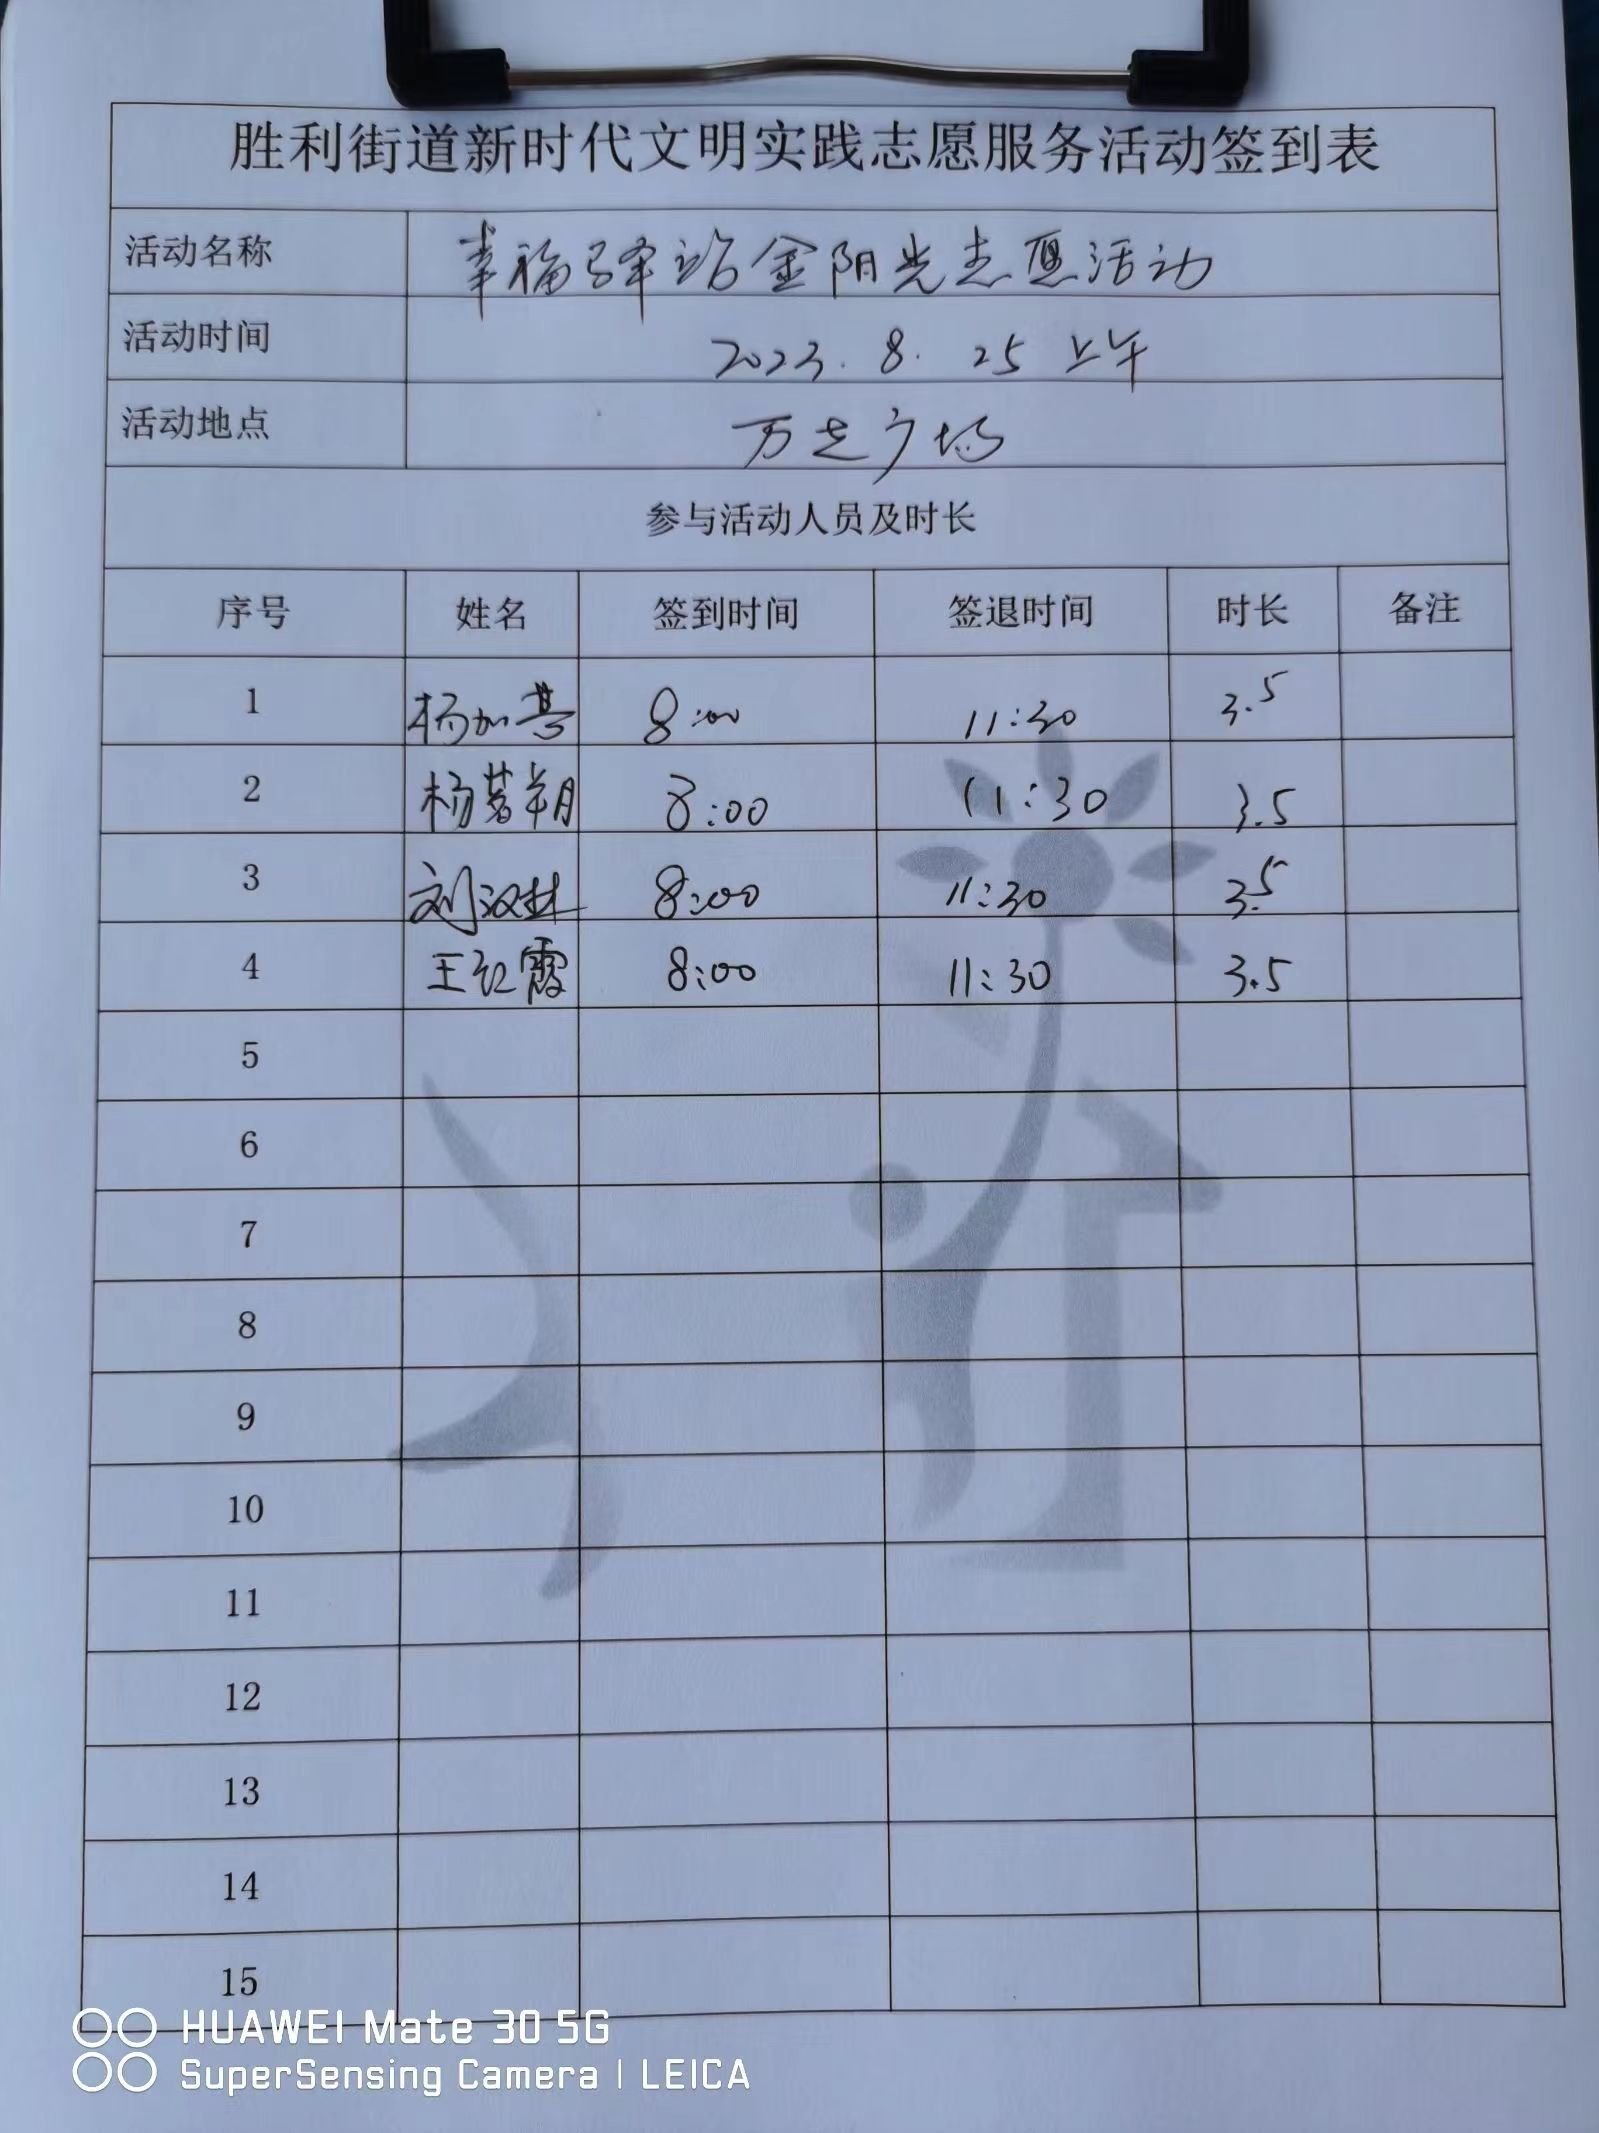 胜利街道新时代文明实践志愿服务活动签到表
活动名称 幸福驿站金阳光志愿活动
活动时间 2023.8.25 上午
活动地点 万达广场
参与活动人员及时长
序号 姓名 签到时间 签退时间 时长 备注
1 杨加 8:00 11:30 3.5
2 杨茗朔 8:00 11:30 3.5
3 刘汉林 8:00 11:30 3.5
4 王红霞 8:00 11:30 3.5
5
6
7
8
9
10
11
12
13
14
15
HUAWEI Mate 30 5G
SuperSensing Camera | LEICA